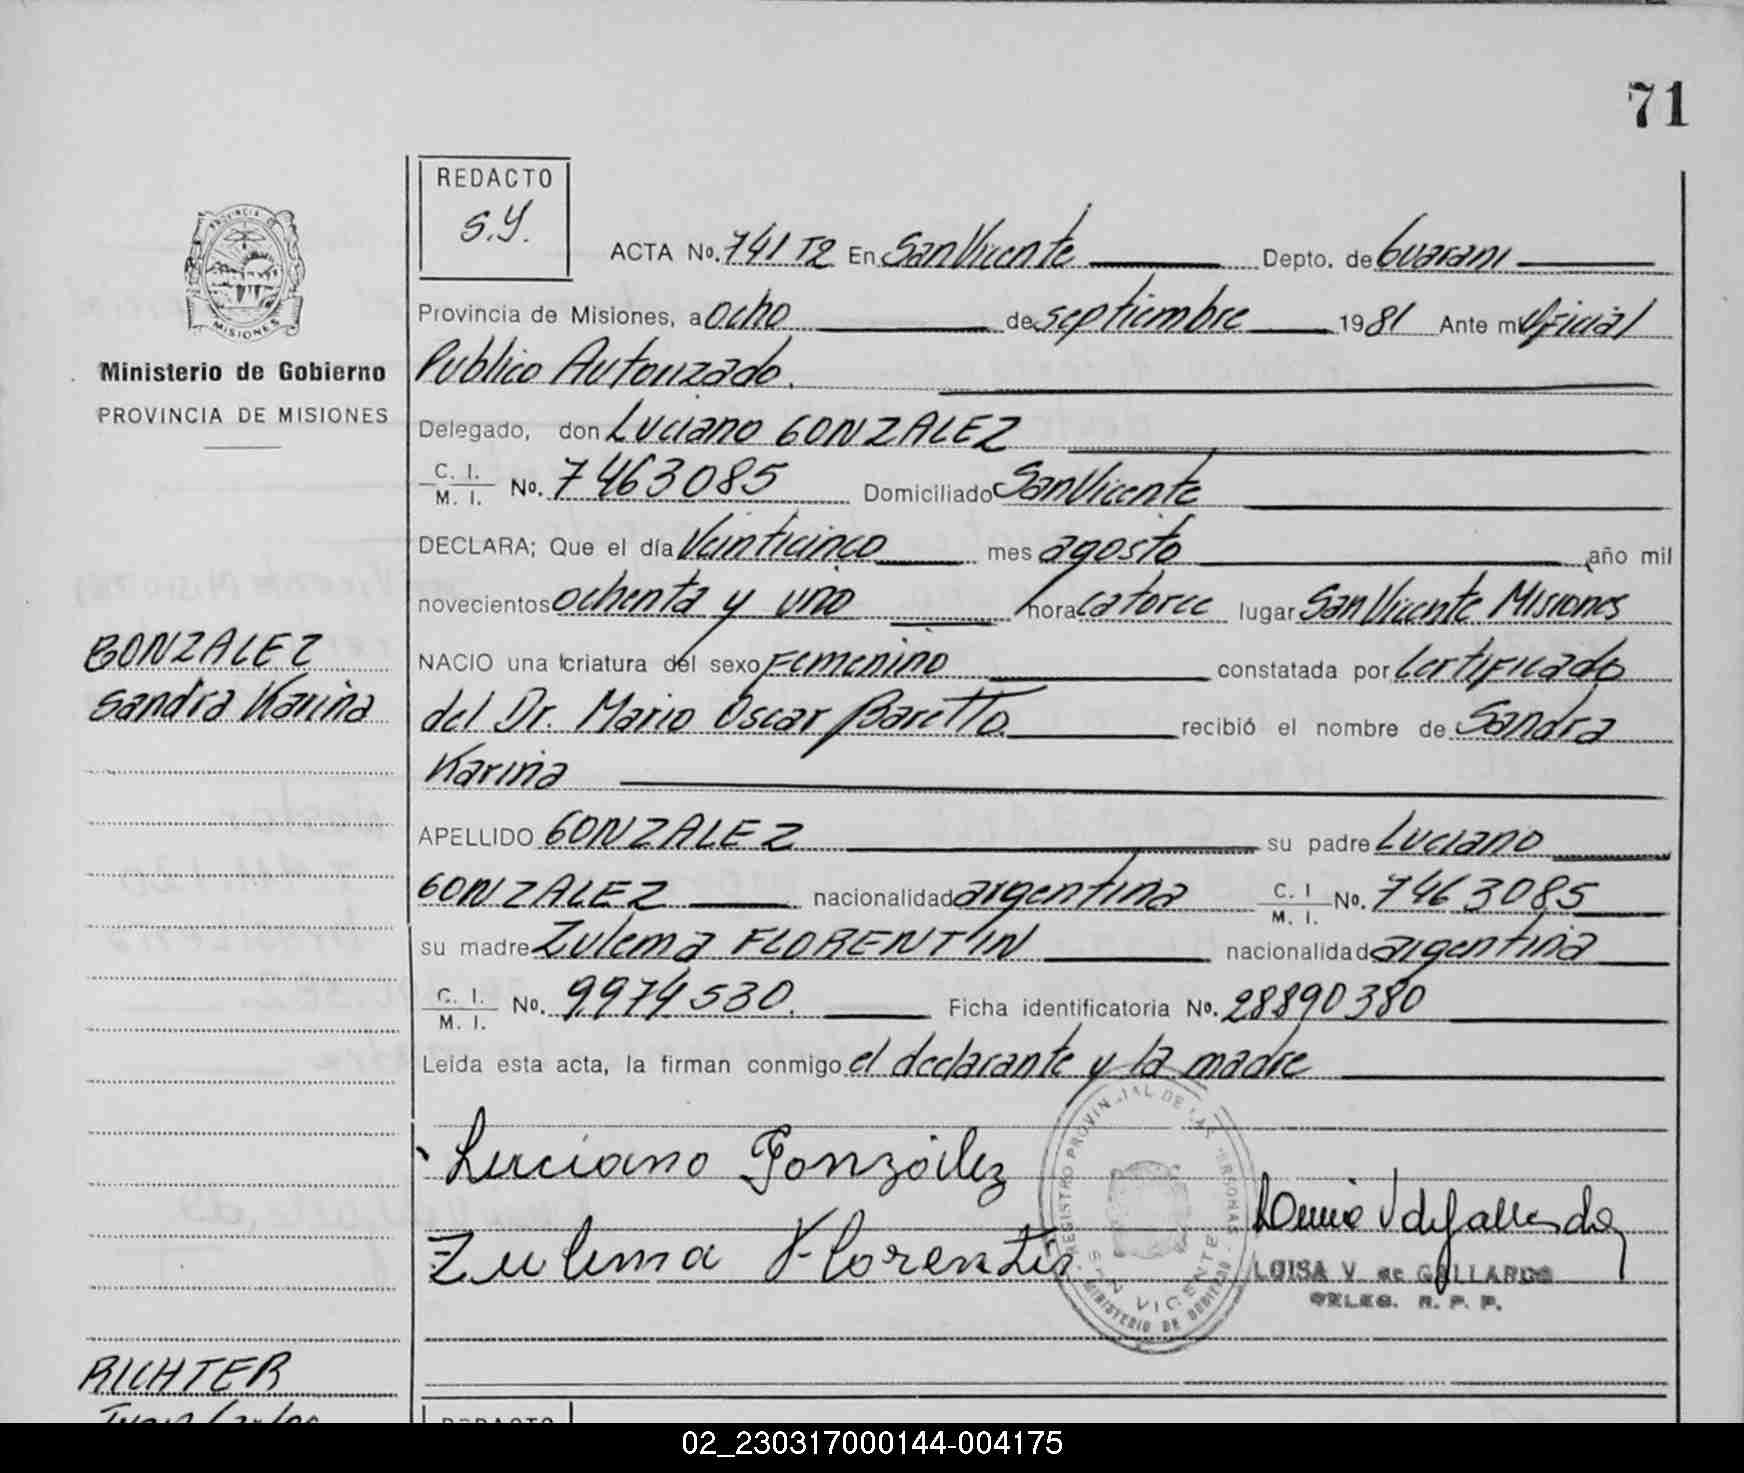 71
REDACTO
S.Y.
ACTA No. 741 T2 En San Vicente Depto. de Guarani
Provincia de Misiones, a ocho de septiembre 1981 Ante mi Oficial
Publico Autorizado.
Ministerio de Gobierno
PROVINCIA DE MISIONES
Delegado, don Luciano GONZALEZ
C. I.
M. I. No. 7463085 Domiciliado San Vicente
DECLARA; Que el día Veinticinco mes agosto año mil
novecientos ochenta y uno hora catorce lugar San Vicente Misiones
GONZALEZ
Sandra Karina
NACIO una criatura del sexo Femenino constatada por Certificado
del Dr. Mario Oscar Baretto. recibió el nombre de Sandra
Karina
APELLIDO GONZALEZ su padre Luciano
GONZALEZ nacionalidad argentina C. I
M. I. No. 7463085
su madre Zulema FLORENTIN nacionalidad argentina
C. I.
M. I. No. 9974530. Ficha identificatoria No. 28890380
Leída esta acta, la firman conmigo el declarante y la madre
Luciano González
Zulema Florentin
REGISTRO PROVINCIAL DE LAS PERSONAS
SAN VICENTE
MINISTERIO DE GOBIERNO
LUISA V. de GALLARDO
DELEG. R. P. P.
RICHTER
Juan Carlos
REDACTO
02_230317000144-004175